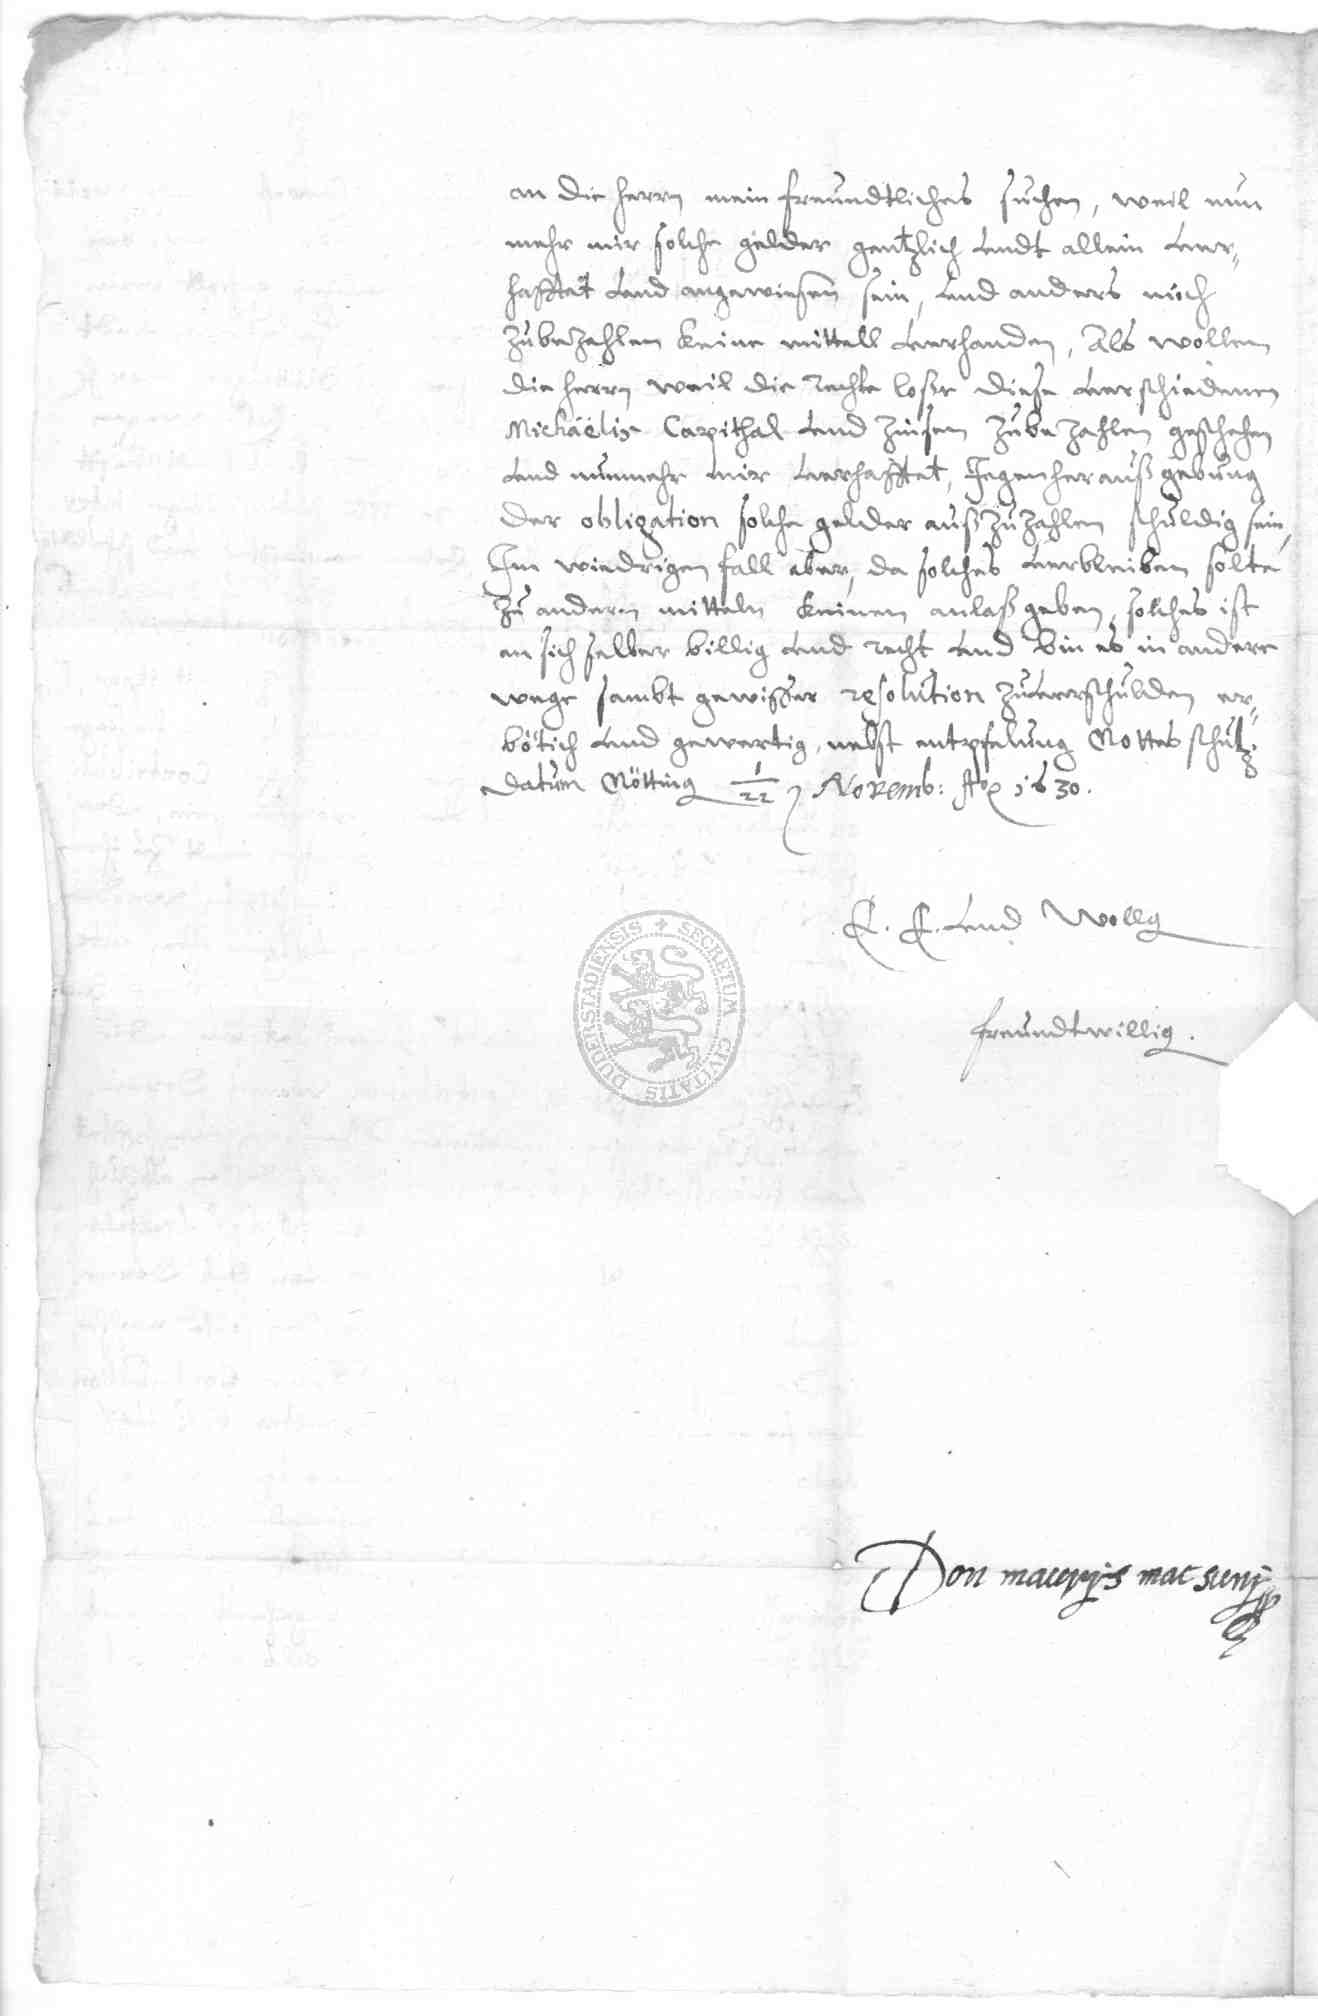 an die herrn mein freundtliches suchen, weil nun
mehr mir solche gelder gentzlich undt allein ver-
hafftet und angewiesen sein, und anders mich
zubezahlen keine mittell verhanden, Als wollen
die herrn weil die rechte lose diese verschiedenen
Michäelis Capithal und zinsen zube zahlen geschehen
und nunmehr mir verhafftet, Jegen herauß gebung
der obligation solche gelder außzuzahlen schuldig sein,
Im wiedrigen fall aber, da solches verbleiben solte
zu andern mitteln keinen anlaß geben, solches ist
an sich selber billig und recht und bin es in andere
wege sambt gewisser resolution zuverschulden er-
bötich und gewertig, nebst entpfelung Gottes schutz.
Datum Götting 1/22 Novemb: Ao 1630.
E. E. und Wollg
freundtwillig.
Don mac
DUDERSTADIENSIS + SECRETUM CIVITATIS